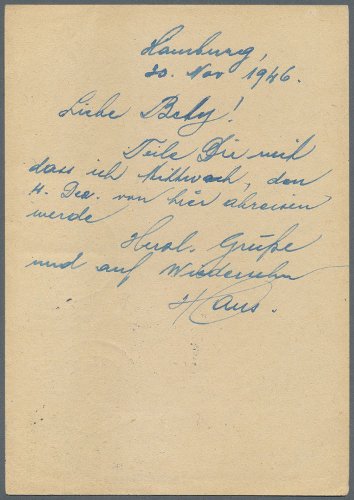 Hamburg,
30. Nov 1946.
Liebe Bety!
Teile Dir mit
dass ich Mittwoch, den
4. Dez. von hier abreisen
werde
Herzl. Grüße
und auf Wiedersehn
Hans.